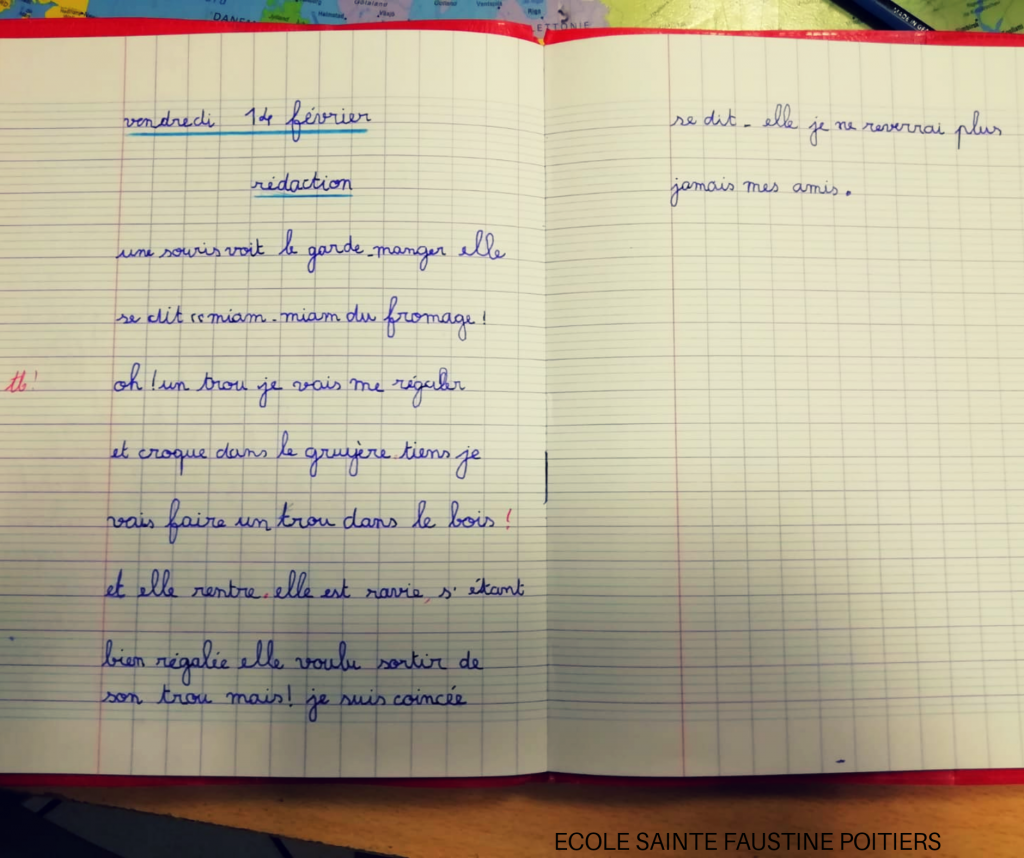 DANEM
LETTONIE
MADE IN
vendredi 14 février
rédaction
une souris voit le garde-manger elle
se dit "miam-miam du fromage!
tb!
oh! un trou je vais me régaler
et croque dans le gruyère. tiens je
vais faire un trou dans le bois!
et elle rentre. elle est ravie, s'étant
bien régalée elle voulu sortir de
son trou mais! je suis coincée
se dit-elle je ne reverrai plus
jamais mes amis.
ECOLE SAINTE FAUSTINE POITIERS